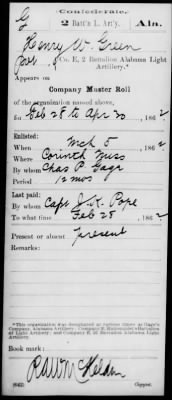 Confederate.
G 2 Batt'n L. Art'y. Ala.
Henry W. Green
Co. E, 2 Battalion Alabama Light
Artillery.*
Appears on
Company Muster Roll
of the organization named above,
for Feb 28 to Apr 30, 1862
Enlisted:
When Mch 5, 1862
Where Corinth Miss
By whom Chas P. Gage
Period 12 mos
Last paid:
By whom Capt J. K. Pope
To what time Feb 28, 1862
Present or absent Present
Remarks:
*This organization was designated at various times as Gage's
Company, Alabama Artillery; Company E, 2 Battalion Alabama
Light Artillery
Book mark:
(642) Copyist.